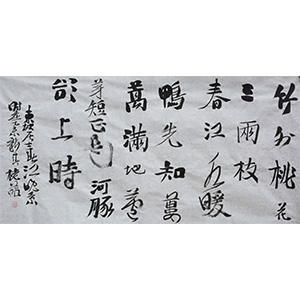 竹外桃花
三兩枝
春江水暖
鴨先知蔞
蒿滿地蘆
芽短正是河豚
欲上時
東坡居士春江晚景